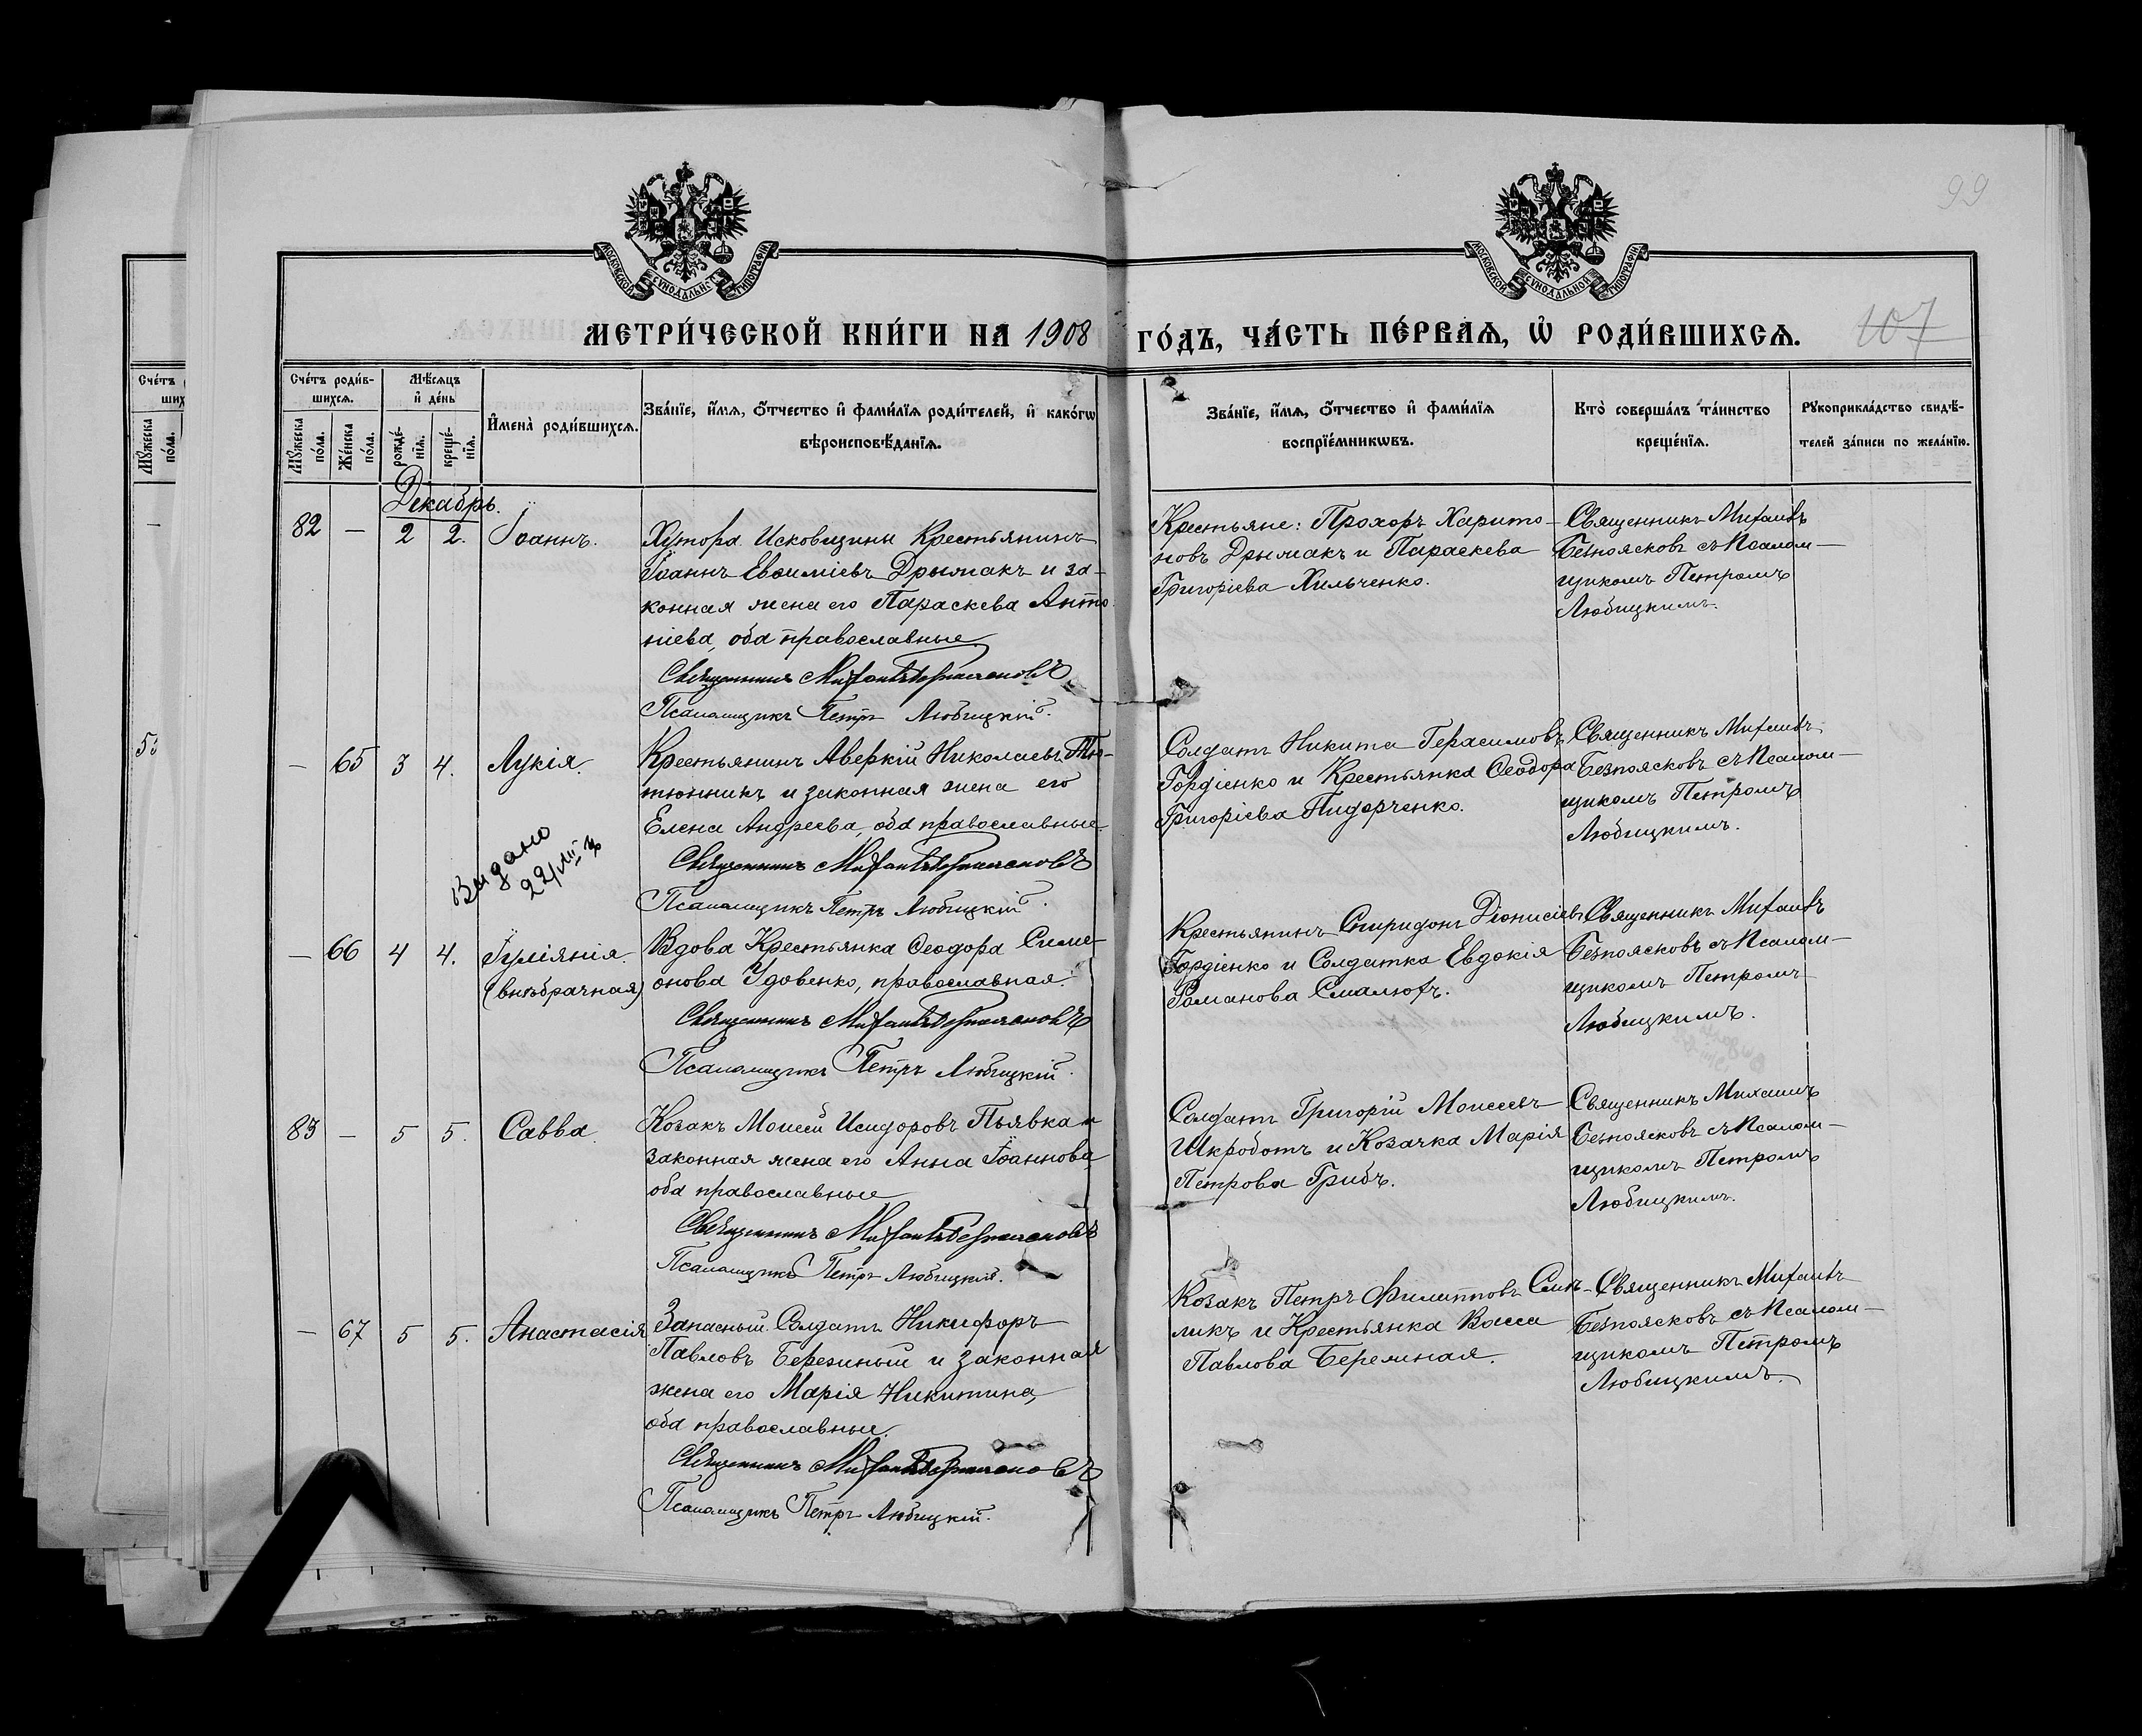 99
МОСКОВСКОЙ СѴНОДАЛЬНОЙ ТИПОГРАФІИ
МОСКОВСКОЙ СѴНОДАЛЬНОЙ ТИПОГРАФІИ
МЕТРИ́ЧЕСКОЙ КНИ́ГИ НА 1908 ГО́ДЪ, ЧА́СТЬ ПЕ́РВАѦ, Ѡ҆ РОДИ́ВШИХСѦ.
107
Сче́тъ роди́в-
шихсѧ.
Мѣ́сѧцъ
и҆ де́нь
Мꙋ́жеска по́ла.
Же́нска по́ла.
рожде́-
нїѧ.
креще́-
нїѧ.
И҆мена̀ роди́вшихсѧ.
Зва́нїе, и҆́мѧ, ѻ҆́тчество и҆ фами́лїѧ роди́телей, и҆ како́гѡ
вѣроисповѣ́данїѧ.
Зва́нїе, и҆́мѧ, ѻ҆́тчество и҆ фами́лїѧ
воспрїе́мникѡвъ.
Кто̀ соверша́лъ та́инство
креще́нїѧ.
Рꙋкоприкла́дство свидѣ́-
телей за́писи по жела́нїю.
Сче́тъ
ших
Мꙋ́жеска по́ла.
Декабрь.
82 — 2 2. Іоаннъ.
Хутора Исковщины Крестьянинъ
Іоаннъ Евѳиміевъ Дрымакъ и за-
конная жена его Параскева Анто
ніева, оба православные
Священникъ Михаилъ Безпоясковъ
Псаломщикъ Петръ Любицкій.
Крестьяне: Прохоръ Харито-
новъ Дрымакъ и Параскева
Григоріева Хильченко.
Священникъ Михаилъ
Безпоясковъ съ Псалом-
щикомъ Петромъ
Любицкимъ.
— 65 3 4. Лукія.
Крестьянинъ Аверкій Николаевъ Тю-
тюнникъ и законная жена его
Елена Андреева, оба православные.
Священникъ Михаилъ Безпоясковъ
Псаломщикъ Петръ Любицкій.
Солдатъ Никита Герасимовъ
Гордіенко и Крестьянка Ѳеодора
Григоріева Пидорченко.
Священникъ Михаилъ
Безпоясковъ съ Псалом-
щикомъ Петромъ
Любицкимъ.
Видано
— 66 4 4. Іуліянія.
(внѣбрачная)
Вдова Крестьянка Ѳеодора Симе-
онова Удовенко, православная.
Священникъ Михаилъ Безпоясковъ
Псаломщикъ Петръ Любицкій.
Крестьянинъ Спиридонъ Діонисіевъ
Гордіенко и Солдатка Евдокія
Романова Смалюхъ.
Священникъ Михаилъ
Безпоясковъ съ Псалом-
щикомъ Петромъ
Любицкимъ.
83 — 5 5. Савва.
Козакъ Моисей Исидоровъ Пьявка и
законная жена его Анна Іоаннова
оба православные
Священникъ Михаилъ Безпоясковъ
Псаломщикъ Петръ Любицкій.
Солдатъ Григорій Моисеевъ
Шкроботъ и Козачка Марія
Петрова Грибъ.
Священникъ Михаилъ
Безпоясковъ съ Псалом-
щикомъ Петромъ
Любицкимъ.
— 67 5 5. Анастасія
Запасный Солдатъ Никифоръ
Павловъ Березный и законная
жена его Марія Никитина,
оба православные.
Священникъ Михаилъ Безпоясковъ
Псаломщикъ Петръ Любицкій.
Козакъ Петръ Филипповъ
и Крестьянка Васса
Павлова
Священникъ Михаилъ
Безпоясковъ съ Псалом-
щикомъ Петромъ
Любицкимъ.